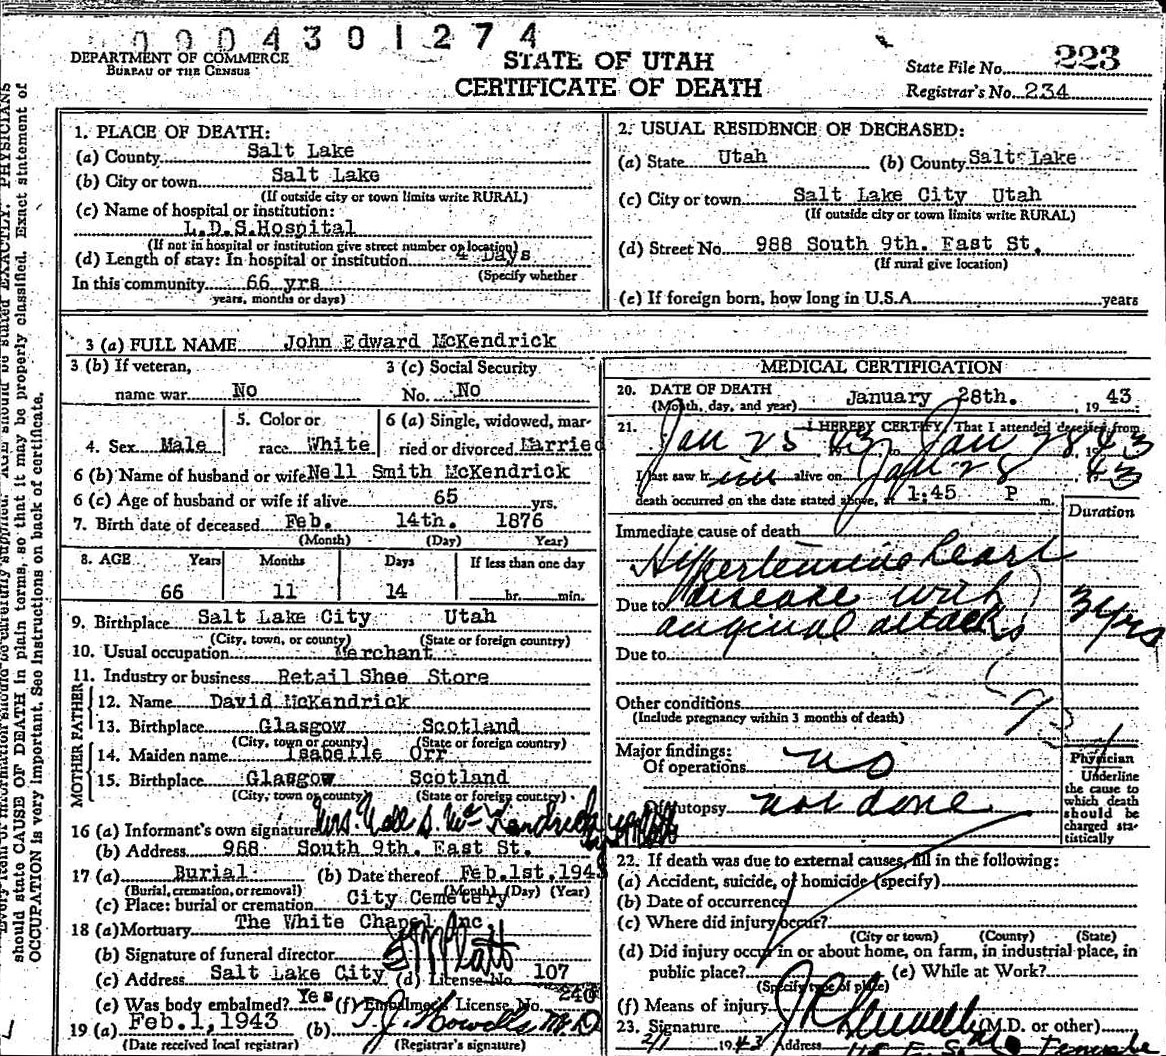 0004301274
DEPARTMENT OF COMMERCE
BUREAU OF THE CENSUS
STATE OF UTAH
CERTIFICATE OF DEATH
State File No. 223
Registrar's No. 234
should state CAUSE OF DEATH in plain terms, so that it may be properly classified. Exact statement of
OCCUPATION is very important. See Instructions on back of certificate.
1. PLACE OF DEATH:
(a) County Salt Lake
(b) City or town Salt Lake
(If outside city or town limits write RURAL)
(c) Name of hospital or institution:
L.D.S.Hospital
(If not in hospital or institution give street number or location)
(d) Length of stay: In hospital or institution 4 Days
(Specify whether
In this community 66 yrs
years, months or days)
2. USUAL RESIDENCE OF DECEASED:
(a) State Utah (b) County Salt Lake
(c) City or town Salt Lake City Utah
(If outside city or town limits write RURAL)
(d) Street No. 988 South 9th. East St.
(If rural give location)
(e) If foreign born, how long in U.S.A. years
3 (a) FULL NAME John Edward McKendrick
3 (b) If veteran, 3 (c) Social Security
name war No No. No
4. Sex Male 5. Color or race White 6 (a) Single, widowed, married or divorced Married
6 (b) Name of husband or wife Nell Smith McKendrick
6 (c) Age of husband or wife if alive 65 yrs.
7. Birth date of deceased Feb. 14th. 1876
(Month) (Day) Year)
8. AGE Years Months Days If less than one day
66 11 14 hr. min.
9. Birthplace Salt Lake City Utah
(City, town, or county) (State or foreign country)
10. Usual occupation Merchant
11. Industry or business Retail Shoe Store
FATHER
12. Name David McKendrick
13. Birthplace Glasgow Scotland
(City, town or county) (State or foreign country)
MOTHER
14. Maiden name Isabelle Orr
15. Birthplace Glasgow Scotland
(City, town or county) (State or foreign country)
16 (a) Informant's own signature Mrs. Nell S. McKendrick
(b) Address 988 South 9th. East St.
17 (a) Burial (b) Date thereof Feb.1st.1943
(Burial, cremation, or removal) (Month) (Day) (Year)
(c) Place: burial or cremation City Cemetery
18 (a) Mortuary The White Chapel Inc
(b) Signature of funeral director Platts
(c) Address Salt Lake City (d) License No. 107
(e) Was body embalmed? Yes (f) Embalmer's License No. 240
19 (a) Feb.1,1943 (b) T. J. Howells M.D
(Date received local registrar) (Registrar's signature)
MEDICAL CERTIFICATION
20. DATE OF DEATH January 28th. 1943
(Month, day, and year)
21. I HEREBY CERTIFY, That I attended deceased from
Jan 25 1943, to Jan 28 1943
I last saw him alive on Jan 28 1943
death occurred on the date stated above, at 1:45 P m.
Duration
Immediate cause of death
Hypertensive heart
Due to disease with 3 yrs
anginal attacks
Due to
Other conditions
(Include pregnancy within 3 months of death)
Major findings:
Of operations no
Of autopsy not done
Physician
Underline
the cause to
which death
should be
charged sta-
tistically
22. If death was due to external causes, fill in the following:
(a) Accident, suicide, or homicide (specify)
(b) Date of occurrence
(c) Where did injury occur?
(City or town) (County) (State)
(d) Did injury occur in or about home, on farm, in industrial place, in
public place? (e) While at Work?
(Specify type of place)
(f) Means of injury
23. Signature (M.D. or other)
2/1 1943 Address